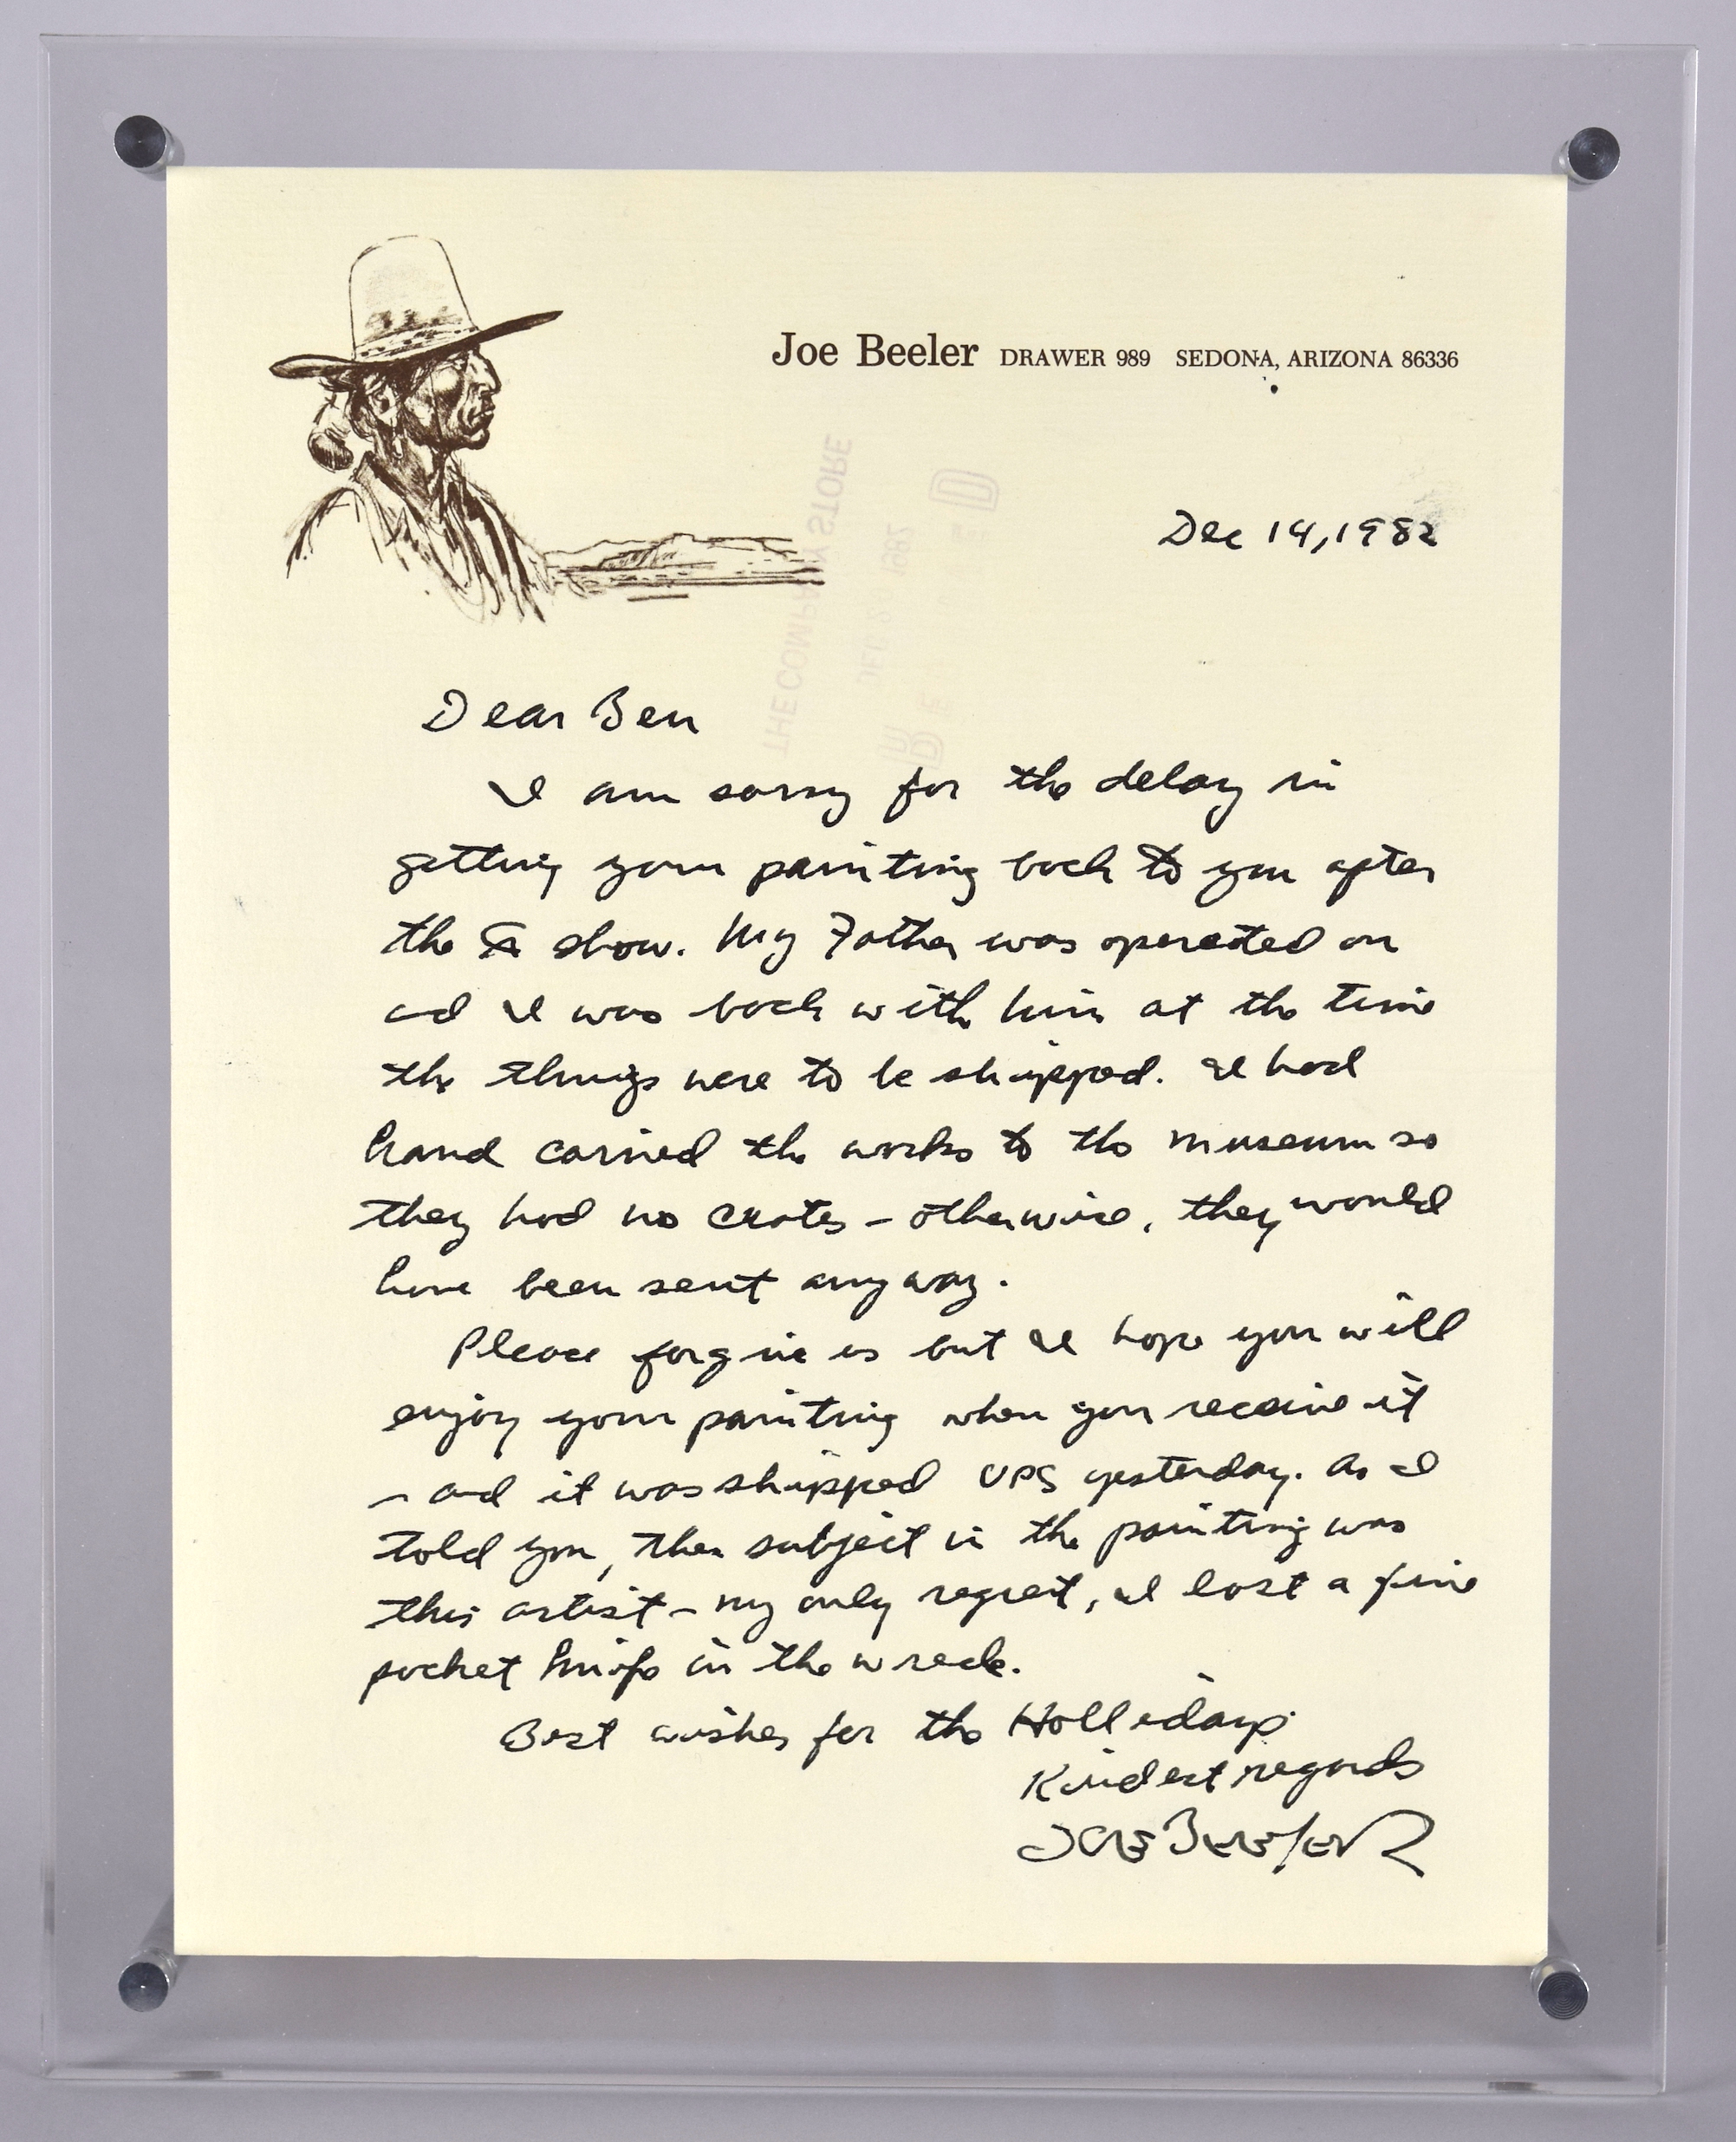 Joe Beeler DRAWER 989 SEDONA, ARIZONA 86336
THE COMPANY STORE
Dec 14, 1982
Dear Ben
I am sorry for the delay in
getting your painting back to you after
the show. My Father was operated on
and I was back with him at the time
the things were to be shipped. I had
hand carried the works to the museum so
they had no crates - otherwise, they would
have been sent anyway.
Please forgive us but I hope you will
enjoy your painting when you receive it
- and it was shipped UPS yesterday. As I
told you, the subject in the painting was
this artist - my only regret, I lost a fine
pocket knife in the wreck.
Best wishes for the Holledays.
Kindest regards
Joe Beeler